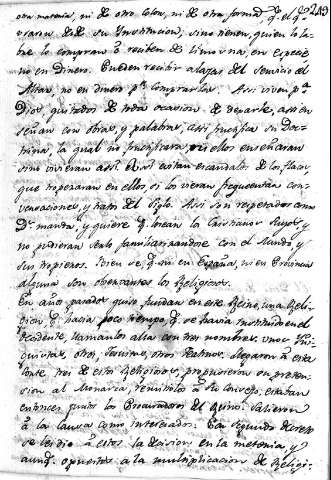 otra materia, ni de otro color, ni de otra forma q.e el q.e
usaron desde su Institucion; sino tienen, quien lo la-
bre lo compran ò reciben de limosna, en especie
no en dinero. Pueden recibir alajas del servicio del
Altar, no en dinero p.a comprarlas. Assi viven p.a
Dios, quitados de toda ocasion de dexarle, assi en
señan con obras, y palabras, assi fructifica su Doc-
trina, la qual no fructificara, si ellos enseñaran
sino vivieran assi. Assi evitan escandalos de los flacos
que tropezaran en ellos, si los vieran frequentar con-
versaciones, y trato del Siglo. Assi son respetados como
D.s manda, y quiere q.e sean los Cristianos suyos, y
no pudieran serlo familiarizandose con el Mundo, y
sus tropiezos. Bien se q.e ni en España, ni en Provincia
alguna son observantes los Religiosos.
En años pasados quiso fundar en este Reino, una Reli-
gion q.e hacia poco tiempo q.e se havia instituido en el
Occidente, llamanlos alla con tres nombres, unos
otros, otros Teatinos. llegaron à esta
Corte tres de estos Religiosos, propusieron su preten-
sion al Monarca, remitiolos à su Consejo, estaban
entonces juntos los Procuradores del Reino. Salieron
à la causa como interesados.
la decision en la materia, y
aunq.e opuestos à la multiplicacion de Religi-